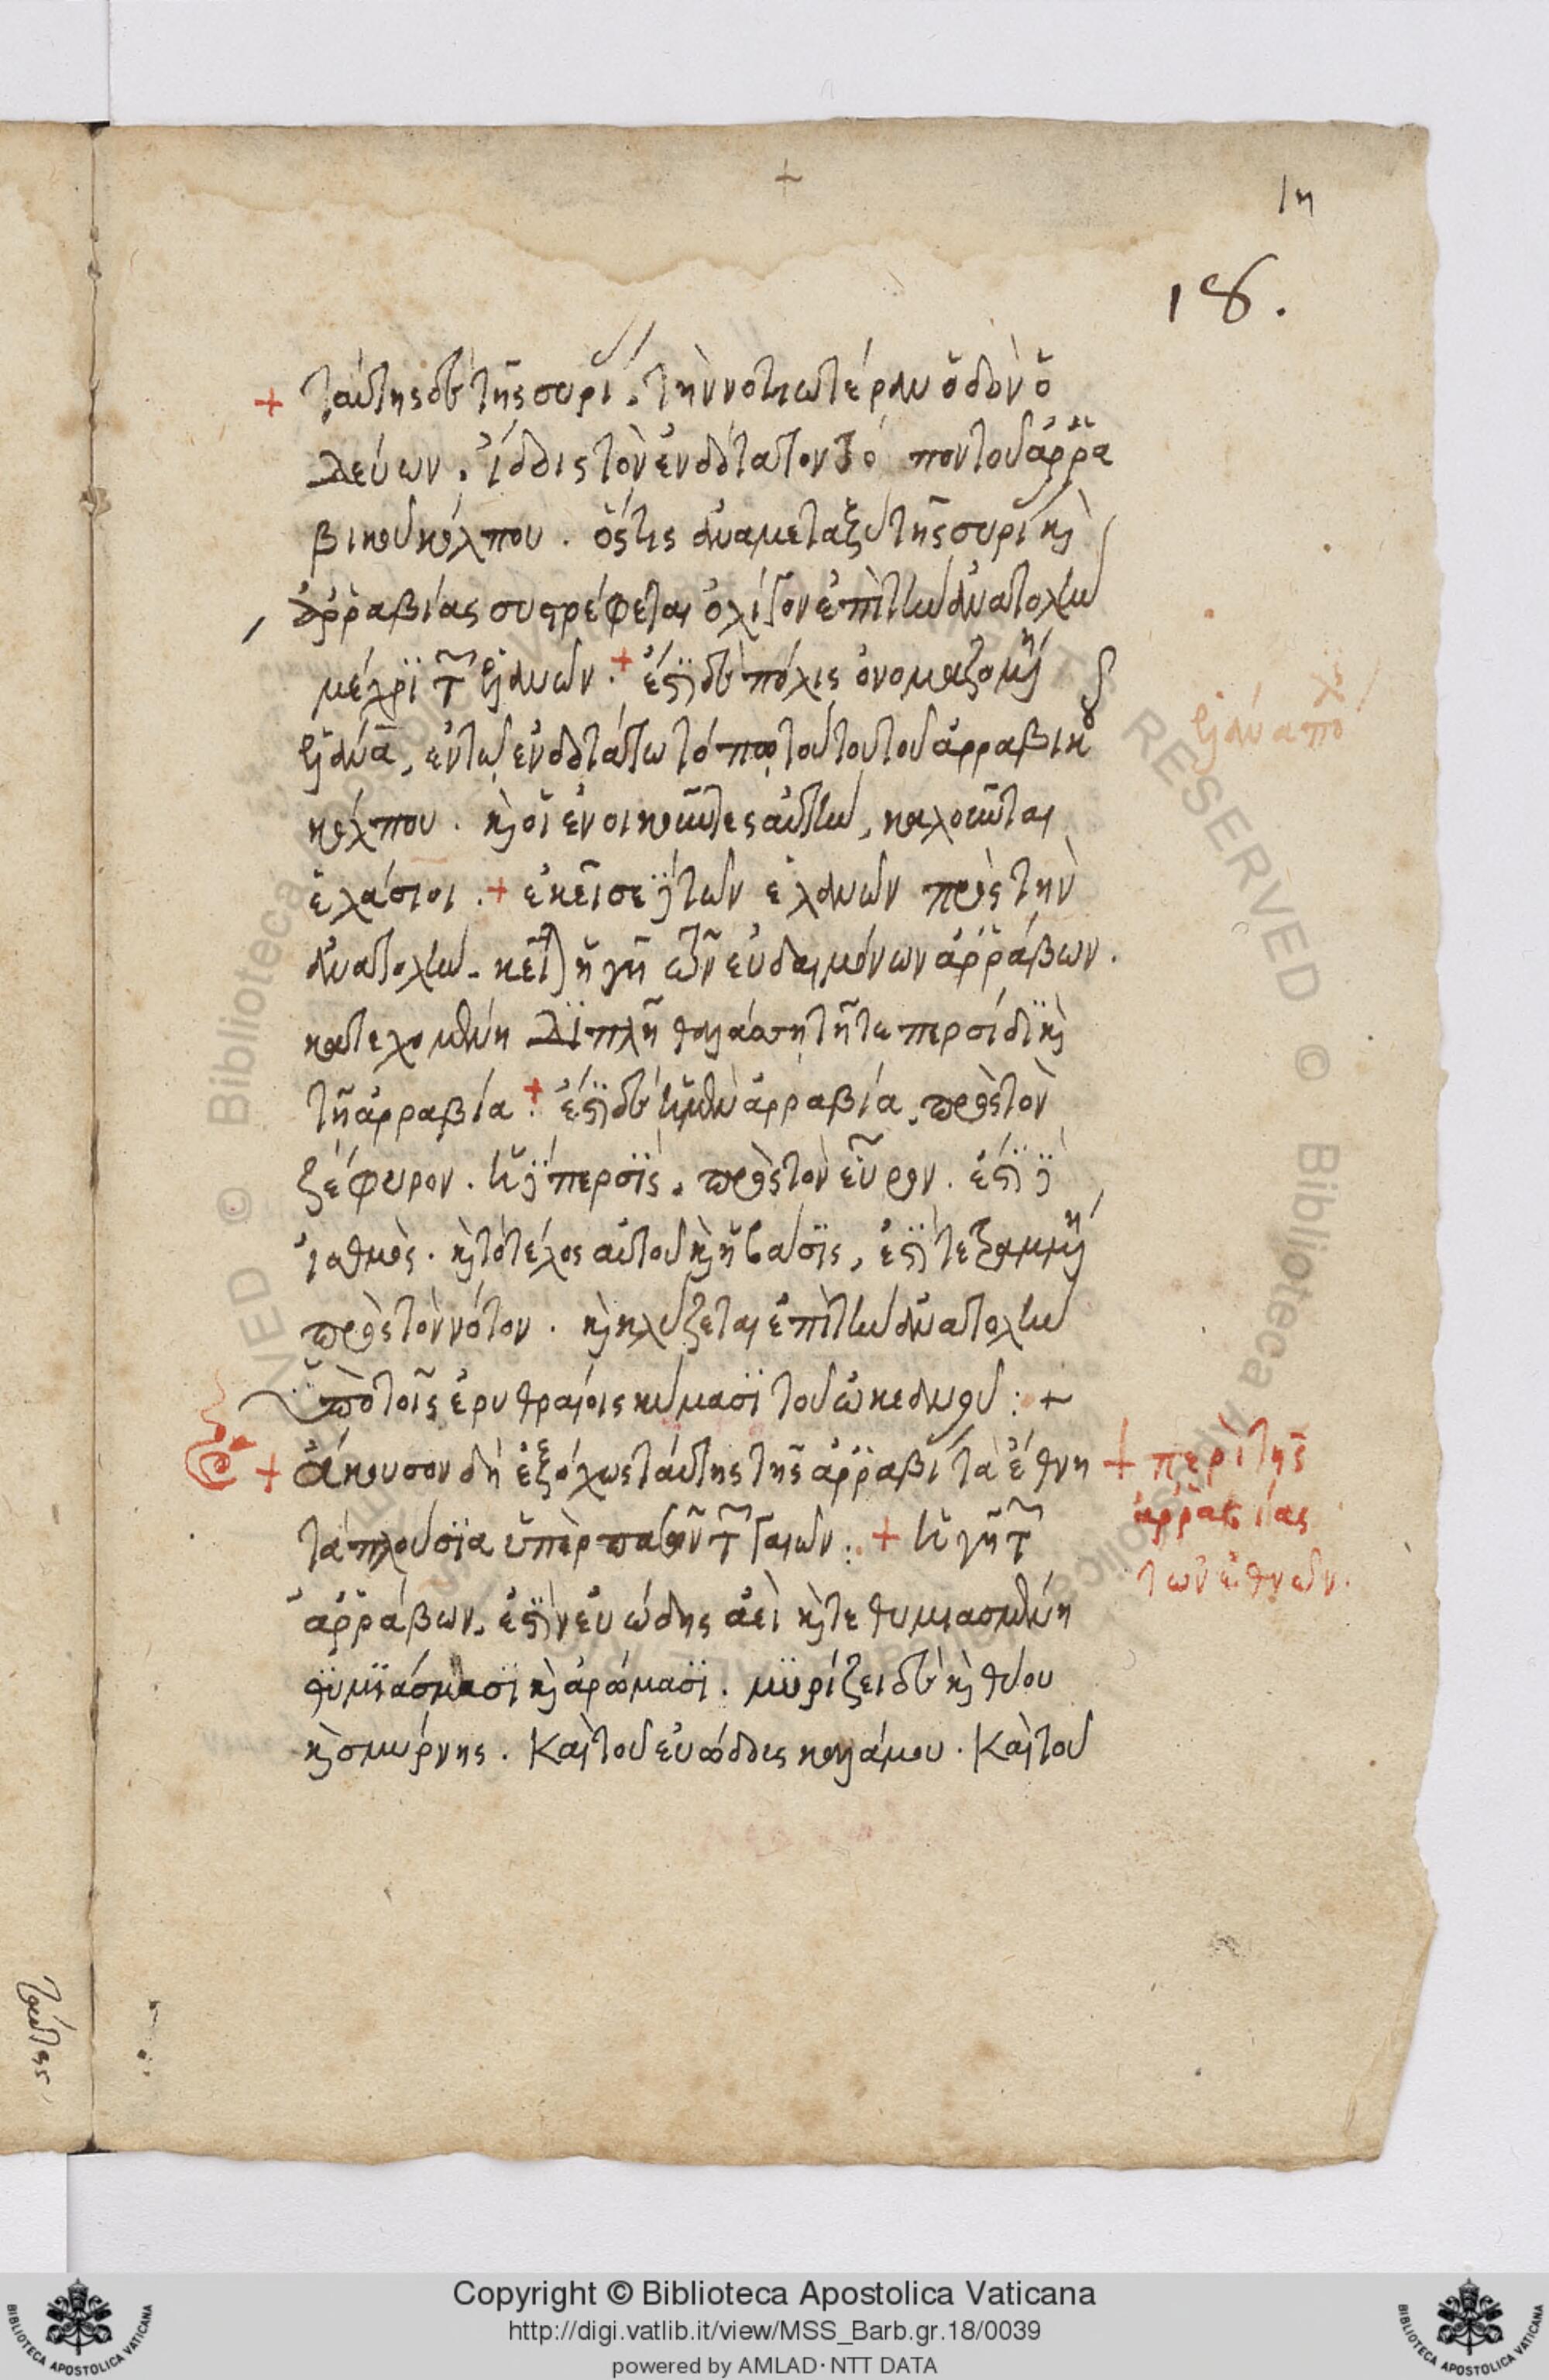 ιη
18.
+ ταύτης δὲ τῆς συρί. τὴν νοτιωτέραν ὁδὸν ὁ
δεύων. ἴδοις τὸν ἐνδότατον τό πον τοῦ ἀρρα
βικοῦ κόλπου. ὅστις ἀναμεταξὺ τῆς συρί καὶ
ἀρραβίας συστρέφεται ὀλίγον ἐπὶ τὴν ἀνατολὴν
μέχρι τῶν ἐλανῶν. + ἔστι δὲ πόλις ὀνομαζομένη
ἐλάνα, ἐν τῷ ἐνδοτάτω τόπω τούτου τοῦ ἀρραβικοῦ
κόλπου. καὶ οἱ ἐνοικοῦντες αὐτὴν, καλοῦνται
ἐλάσιοι. + ἐκεῖσε γὰρ τῶν ἐλανῶν πρὸς τὴν
ἀνατολὴν. κεῖται ἡ γῆ τῶν εὐδαιμόνων ἀρράβων.
κατεχομένη διπλῆ θαλάσση τῆ τε περσίδι καὶ
τῆ ἀρραβία. + ἔστι δὲ ἡ μὲν ἀρραβία, πρὸς τὸν
ζέφυρον. ἡ δὲ περσὶς, πρὸς τὸν εὖρον. ἔστι δὲ
ἰσθμὸς. καὶ τὸ τέλος αὐτοῦ καὶ ἡ βάσις, ἔστι τετραμμένη
πρὸς τὸν νότον. καὶ κλύζεται ἐπὶ τὴν ἀνατολὴν
ὑπὸ τοῖς ἐρυθραίοις κύμασι τοῦ ὠκεανοῦ: +
+ ἄκουσον δὴ ἐξόχως ταύτης τῆς ἀρραβί τὰ ἔθνη + περὶ τῆς
ἀρραβίας
τὰ πλούσια ὑπὲρ πασῶν τῶν γαιῶν: + ἡ γῆ τῶν
τῶν ἐθνῶν.
ἀρράβων, ἐστὶν εὐώδης ἀεὶ καὶ τεθυμιασμένη
θυμιάσμασι καὶ ἀρώμασι. μυρίζει δὲ καὶ θύου
καὶ σμύρνης. Καὶ τοῦ εὐώδους καλάμου. Καὶ τοῦ
Copyright © Biblioteca Apostolica Vaticana
http://digi.vatlib.it/view/MSS_Barb.gr.18/0039
powered by AMLAD · NTT DATA